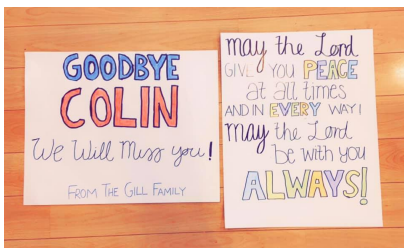 GOODBYE
COLIN
We Will Miss you!
FROM THE GILL FAMILY
may the Lord
GIVE YOU PEACE
at all times
AND IN EVERY WAY!
may the Lord
be with you
ALWAYS!